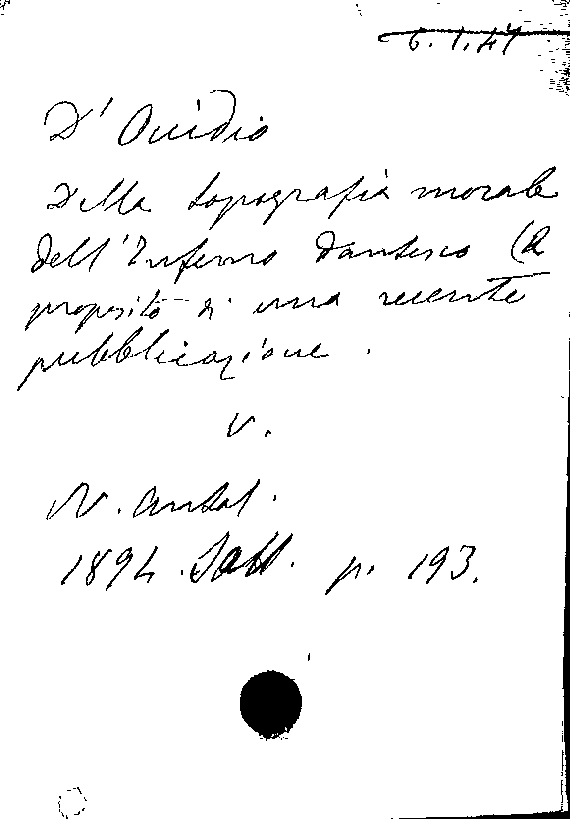 6.1.47
D'Ovidio
Della topografia morale
dell'Inferno dantesco (A
proposito di una recente
pubblicazione.
V.
N. Antol.
1894. Sett. p. 193.